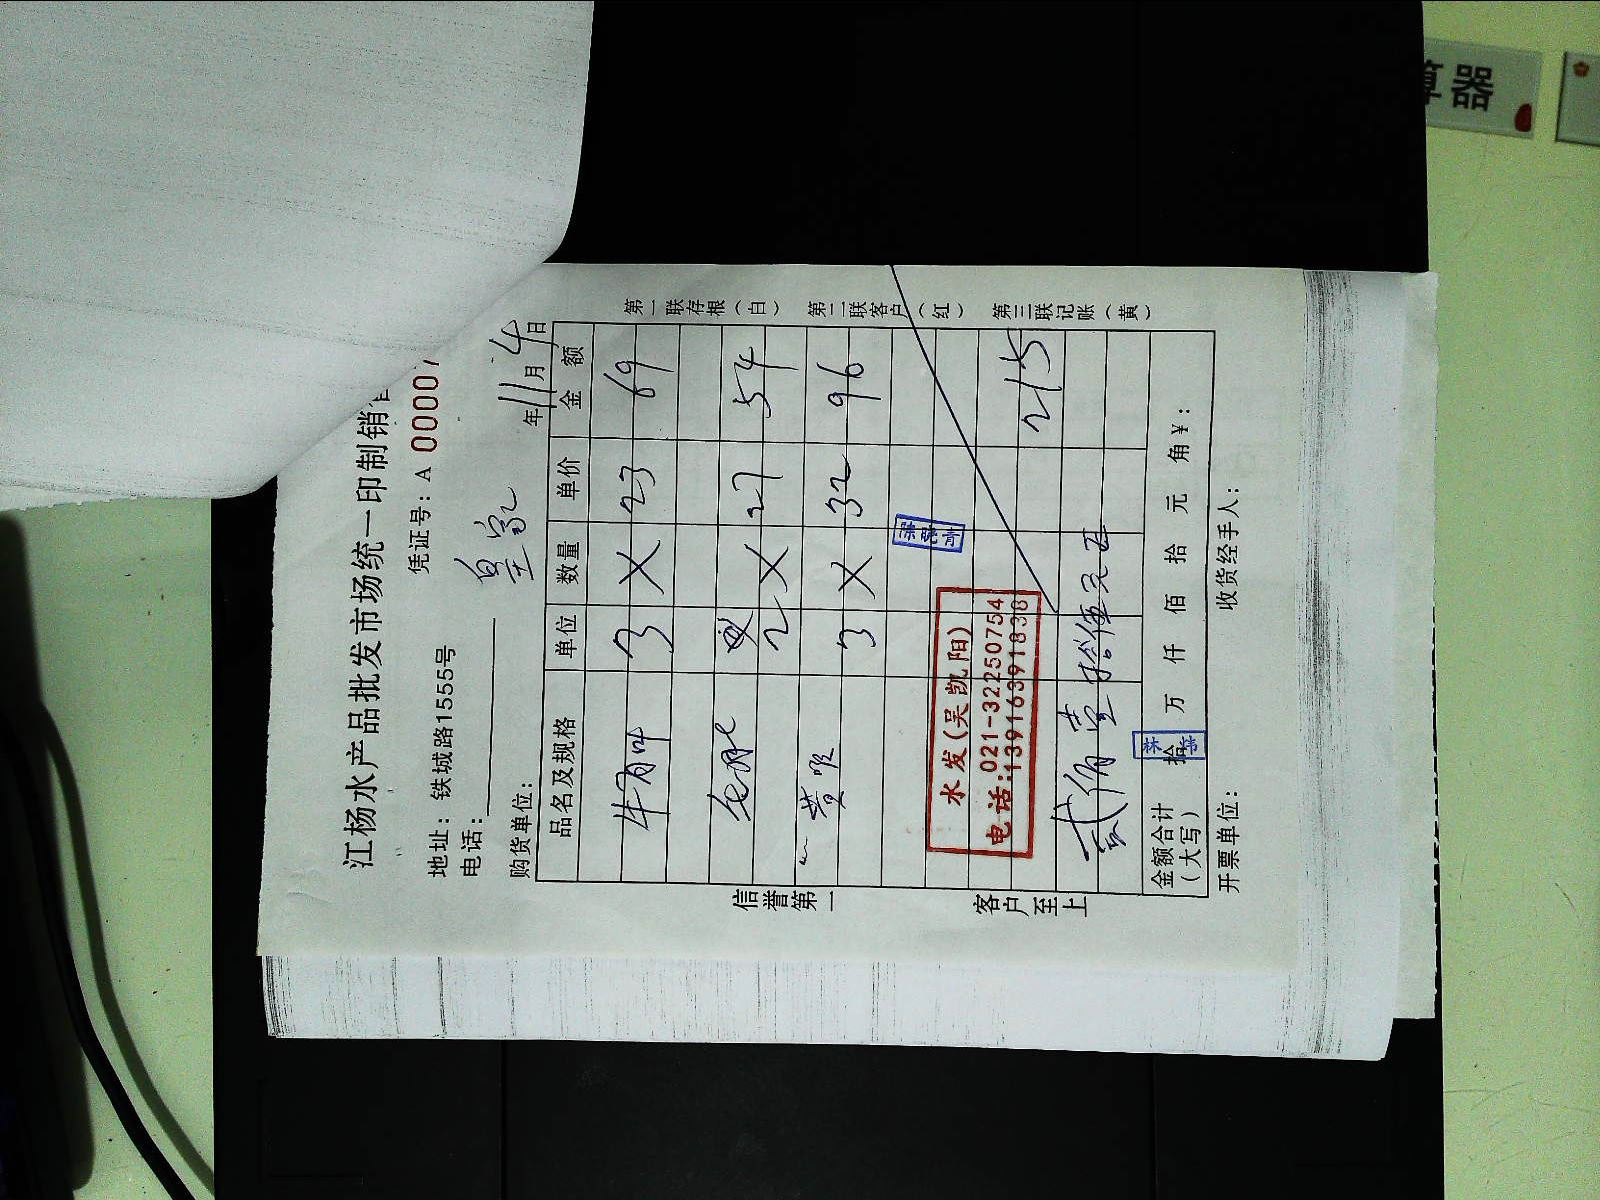 江杨水产品批发市场统一印制销
凭证号：A 00007
地址：铁城路1555号
电话：
购货单位： 皇家 年 11 月 4 日
品名及规格 单位 数量 单价 金 额
牛百叶 3 X 23 69
2 X 27 54
黄喉 3 X 32 96
水发(吴凯阳)
电话:021-32250754
13916391838
215
贰佰壹拾伍元正
金额合计（大写） 拾 万 仟 佰 拾 元 角 ¥：
开票单位： 收货经手人：
信誉第一 客户至上
第一联存根（白） 第二联客户（红） 第三联记账（黄）
算器